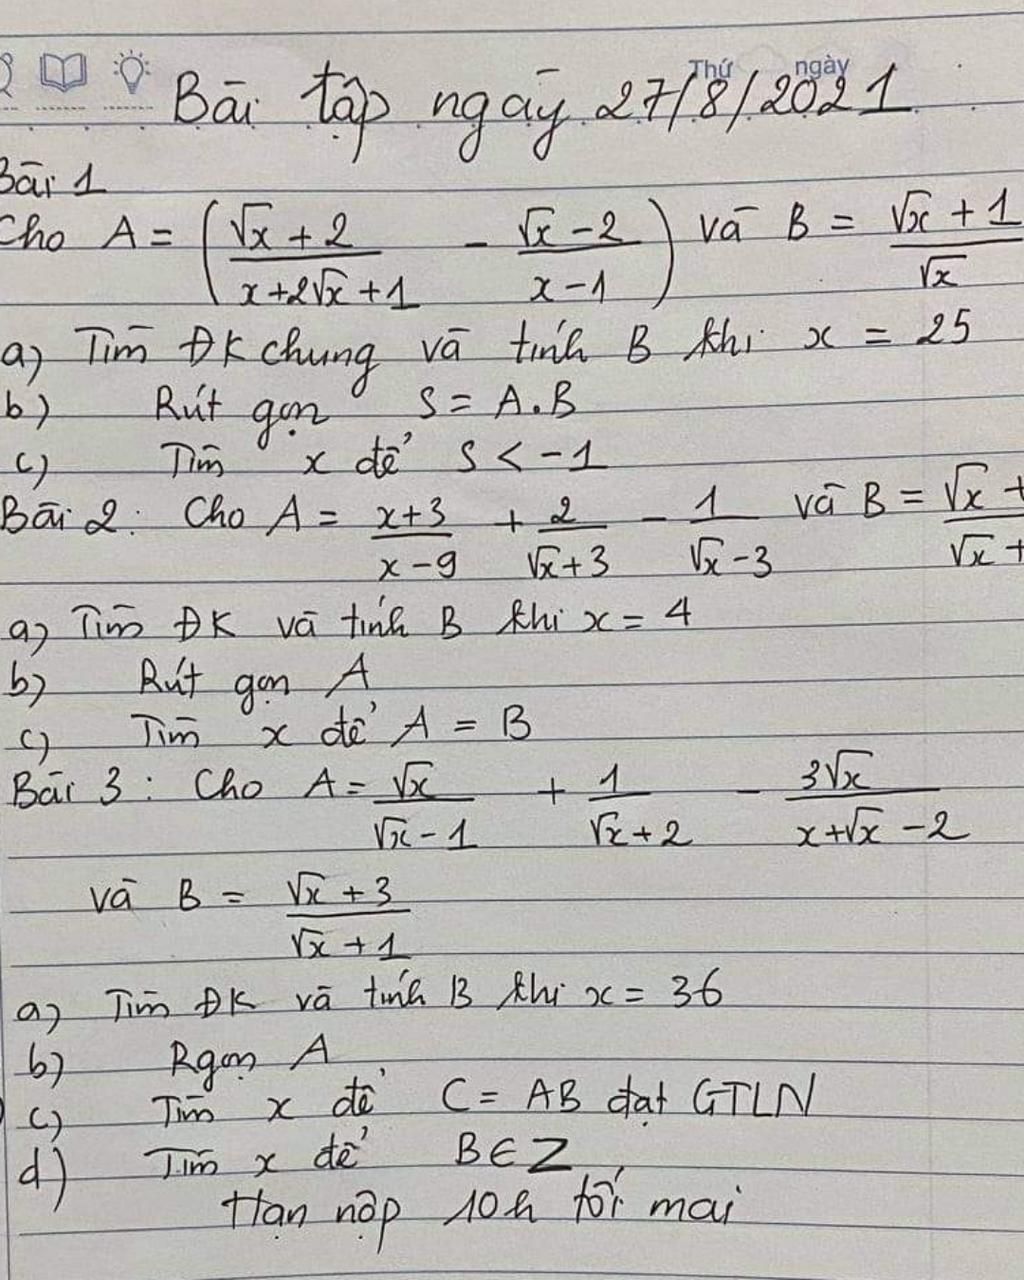 Thứ ngày
Bài tập ngày 27/8/2021
Bài 1
Cho A = ( (√x + 2)/(x + 2√x + 1) - (√x - 2)/(x - 1) ) và B = (√x + 1)/√x
a) Tìm ĐK chung và tính B khi x = 25
b) Rút gọn S = A.B
c) Tìm x để S < -1
Bài 2: Cho A = (x + 3)/(x - 9) + 2/(√x + 3) - 1/(√x - 3) và B = (√x +)/(√x +)
a) Tìm ĐK và tính B khi x = 4
b) Rút gọn A
c) Tìm x để A = B
Bài 3: Cho A = √x/(√x - 1) + 1/(√x + 2) - 3√x/(x + √x - 2)
và B = (√x + 3)/(√x + 1)
a) Tìm ĐK và tính B khi x = 36
b) Rgọn A
c) Tìm x để C = AB đạt GTLN
d) Tìm x để B ∈ Z
Hạn nộp 10h tối mai